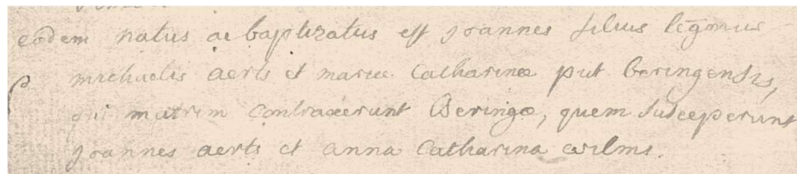 eodem natus ac baptizatus est joannes filius legimus
michaelis aerts et mariæ Catharinæ put beringensis,
qui matrim contraxerunt Beringæ, quem susceperunt
joannes aerts et anna Catharina wilms.